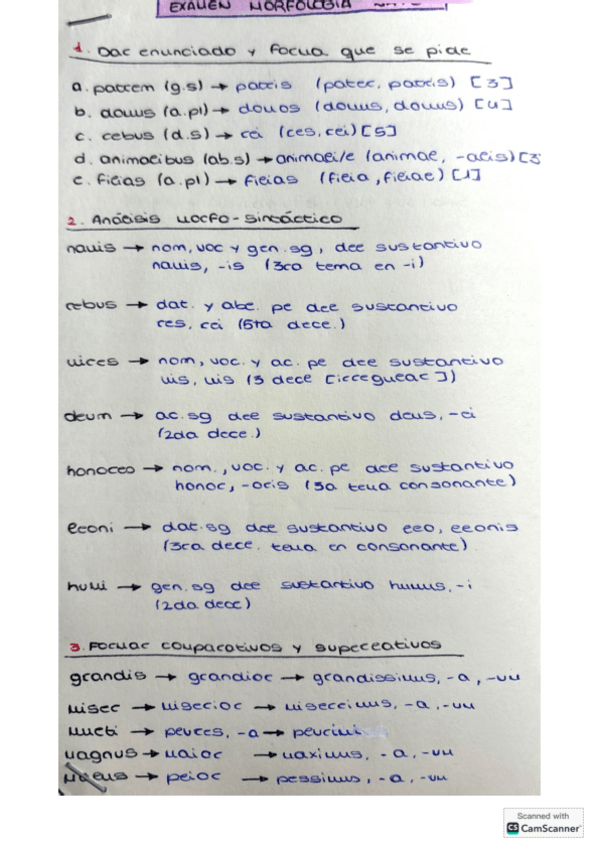 EXAMEN MORFOLOGÍA
1. Dar enunciado y forma que se pide
a. patrem (g.s) → patris (pater, patris) [3]
b. domus (a.pl) → domos (domus, domus) [4]
c. rebus (d.s) → rei (res, rei) [5]
d. animalibus (ab.s) → animali/e (animal, -alis) [3
e. filias (a.pl) → filias (filia, filiae) [1]
2. Análisis morfo-sintáctico
nauis → nom, voc y gen.sg, del sustantivo
nauis, -is (3ra tema en -i)
rebus → dat. y abl. pl del sustantivo
res, rei (5ta decl.)
uires → nom, voc. y ac. pl del sustantivo
uis, uis (3 decl [irregular])
deum → ac.sg del sustantivo deus, -ei
(2da decl.)
honores → nom., voc. y ac. pl del sustantivo
honor, -oris (3a tema consonante)
leoni → dat.sg del sustantivo leo, leonis
(3ra decl. tema en consonante)
humi → gen.sg del sustantivo humus, -i
(2da decl)
3. Formar comparativos y superlativos
grandis → grandior → grandissimus, -a, -um
miser → miserior → miserrimus, -a, -um
multi → plures, -a → plurimi
magnus → maior → maximus, -a, -um
malus → peior → pessimus, -a, -um
Scanned with
CS CamScanner